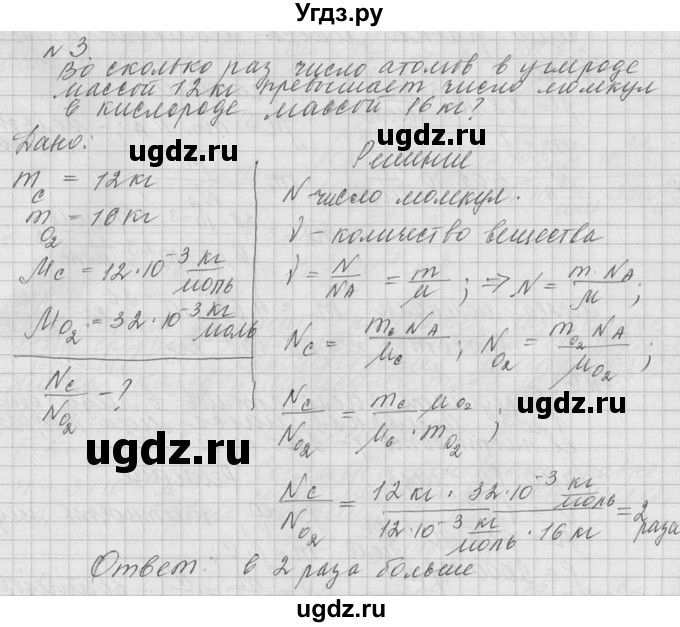 Угдз.ру
№ 3
Во сколько раз число атомов в углероде
массой 12 кг превышает число молекул
в кислороде массой 16 кг?
Дано:
m_C = 12 кг
m_O₂ = 16 кг
M_C = 12·10⁻³ кг/моль
M_O₂ = 32·10⁻³ кг/моль
N_C/N_O₂ - ?
Решение
N - число молекул.
ν - количество вещества
ν = N/N_A = m/M ; ⇒ N = m·N_A/M ;
N_C = m_C N_A/M_C ; N_O₂ = m_O₂ N_A/M_O₂ ;
N_C/N_O₂ = m_C M_O₂/M_C · m_O₂ ;
N_C/N_O₂ = 12 кг · 32·10⁻³ кг/моль / 12·10⁻³ кг/моль · 16 кг = 2 раза
Ответ: в 2 раза больше
ugdz.ru
ugdz.ru
ugdz.ru
ugdz.ru
ugdz.ru
ugdz.ru
ugdz.ru